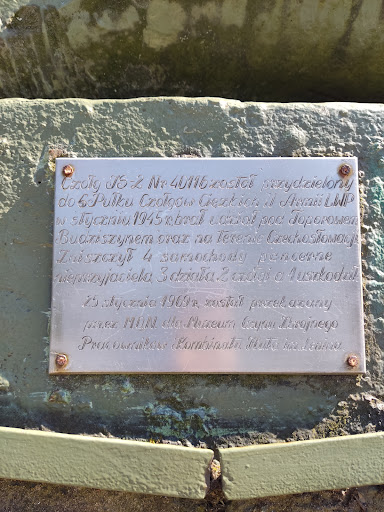 Czołg JS-2 Nr 40116 został przydzielony
do 6 Pułku Czołgów Ciężkich II Armii LWP
w styczniu 1945 r. brał udział pod Toporowem
Budziszynem oraz na terenie Czechosłowacji
Zniszczył 4 samochody pancerne
nieprzyjaciela, 3 działa, 2 czołgi a 1 uszkodził
25 stycznia 1969 r. został przekazany
przez MON dla Muzeum Czynu Zbrojnego
Pracowników Kombinatu Huta im. Lenina